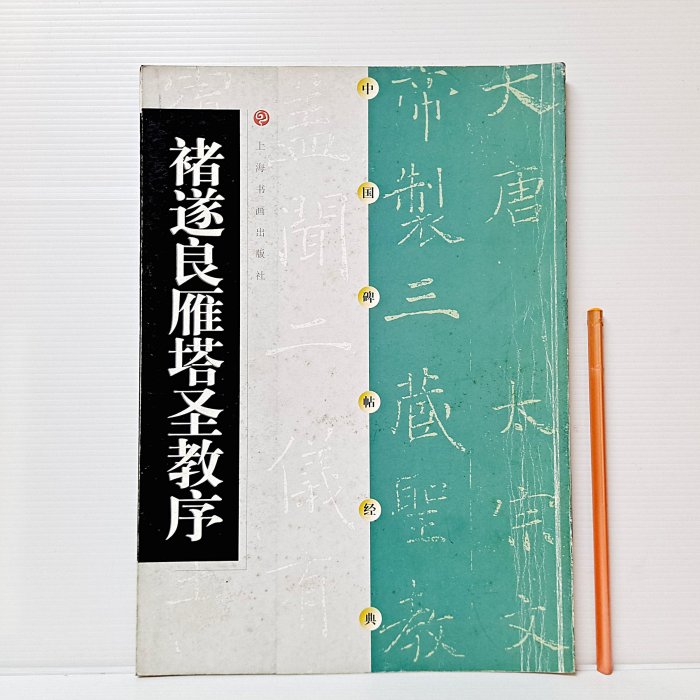 褚遂良雁塔圣教序
上海书画出版社
中国碑帖经典
大唐太宗文
帝製三藏聖教
盖聞二儀有